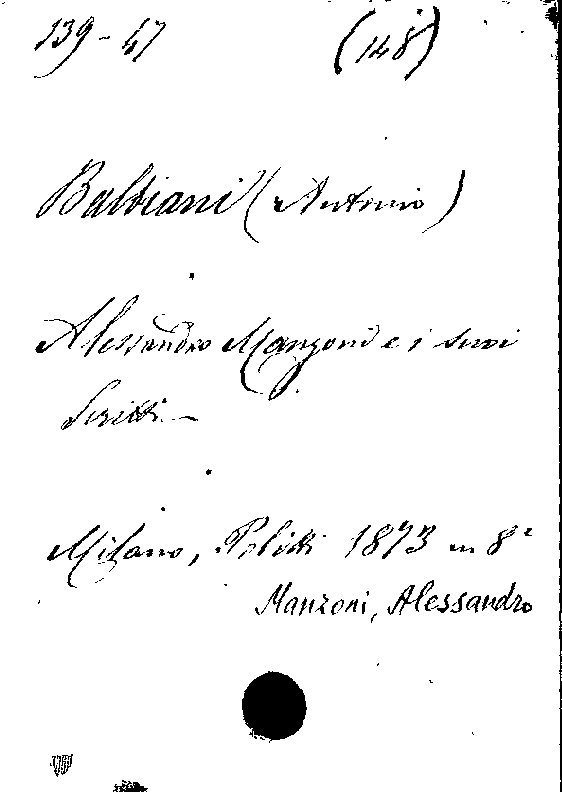 139-47 (148)
Balbiani (Antonio)
Alessandro Manzoni e i suoi
Scritti —
Milano, Politti 1873 in 8°
Manzoni, Alessandro